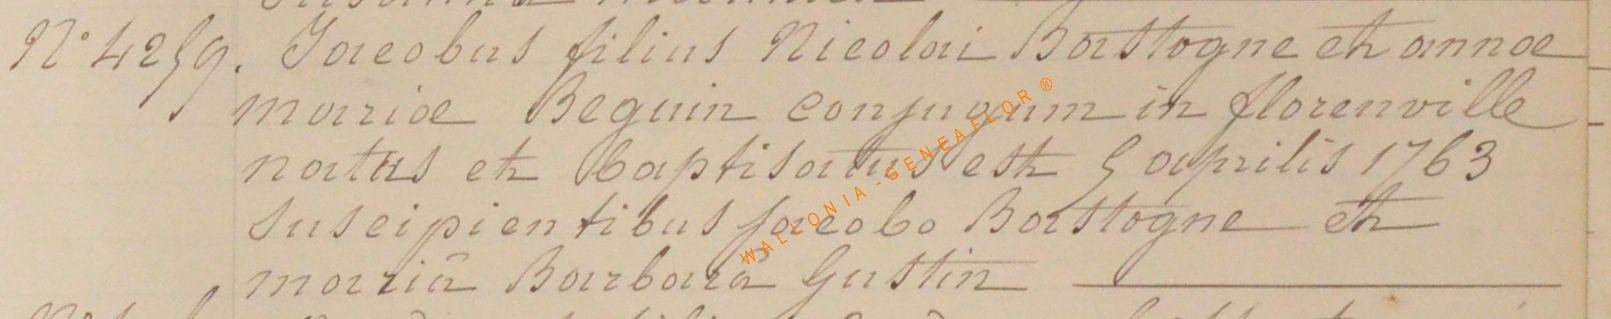 N° 4259. Jacobus filius Nicolai Bastogne et annae
mariae Beguin conjugum in florenville
natus et baptisatus est 5 aprilis 1763
suscipientibus jacobo Bastogne et
mariâ Barbarâ Gustin
WALLONIA-GENEAFLOR®